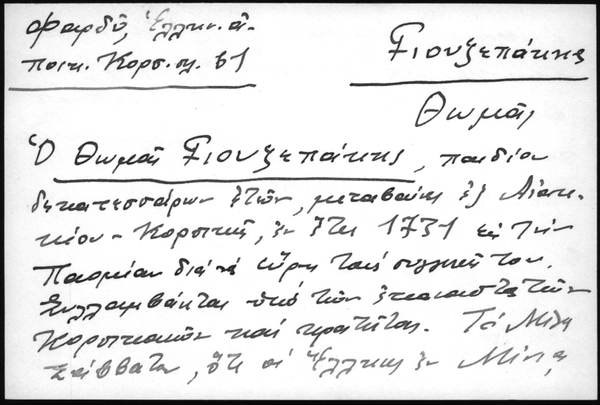 Φαρδῦ, Ἑλλην. ἀ-
ποικ. Κορσ. σλ. 61
Γιουζεπάκης
Θωμᾶς
Ὁ Θωμᾶς Γιουζεπάκης, παιδίον
δεκατεσσάρων ἐτῶν, μεταβαίνει ἐξ Αἰακ-
κείου - Κορσικῆς, ἐν ἔτει 1731 εἰς τὴν
Παομίαν διὰ νὰ εὕρη τοὺς συγγενεῖς του.
Συλλαμβάνεται ὑπὸ τῶν ἐπαναστατῶν
Κορσικανῶν καὶ κρατεῖται. Τὸ
Σάββατον, ὅτε οἱ Ἕλληνες ἐν